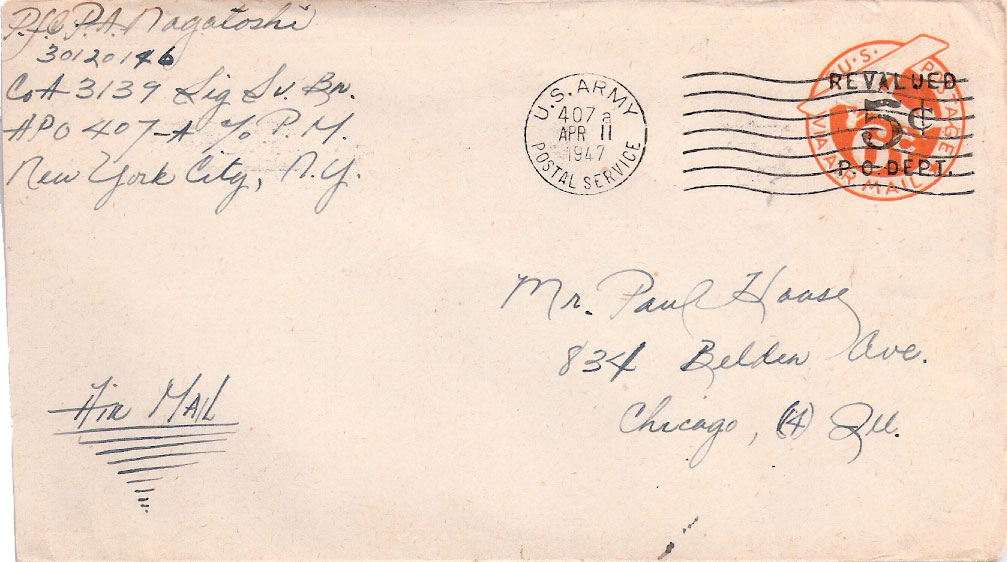 Pfc P.A. Nagatoshi
30120146
Co A 3139 Sig Sv. Bn.
APO 407-A % P.M.
New York City, N.Y.
U.S. ARMY
407 a
APR 11
1947
POSTAL SERVICE
U.S. POSTAGE
REVALUED
5¢
P.O. DEPT.
VIA AIR MAIL
Mr. Paul House
834 Belden Ave.
Chicago, (14) Ill.
Air Mail